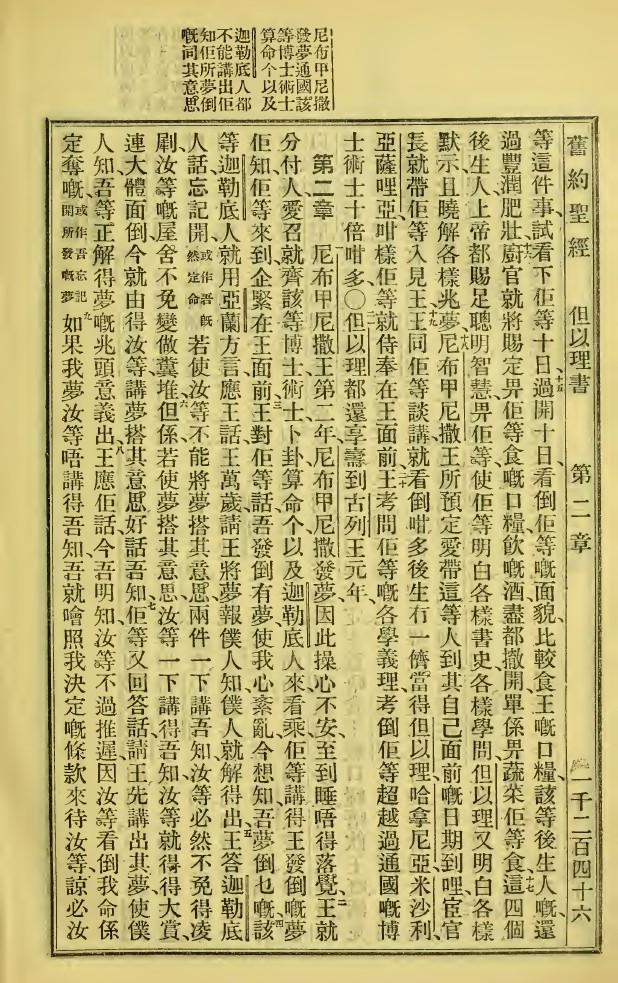 尼布甲尼撒
發夢通國該
等博士術士
算命个以及
迦勒底人都
不能講出佢
知佢所夢倒
嘅同其意思
舊約聖經 但以理書 第二章 一千二百四十六
等這件事試看下佢等十日十五過開十日看倒佢等嘅面貌比較食王嘅口糧該等後生人嘅還
過豐潤肥壯十六廚官就將賜定畀佢等食嘅口糧飲嘅酒盡都撤開單係畀蔬菜佢等食十七這四個
後生人上帝都賜足聰明智慧畀佢等使佢等明白各樣書史各樣學問但以理又明白各樣
默示且曉解各樣兆夢十八尼布甲尼撒王所預定愛帶這等人到其自己面前嘅日期到哩宦官
長就帶佢等入見王十九王同佢等談講就看倒咁多後生冇一儕當得但以理哈拿尼亞米沙利
亞薩哩亞咁樣佢等就侍奉在王面前二十王考問佢等嘅各學義理考倒佢等超越過通國嘅博
士術士十倍咁多〇二一但以理都還享壽到古列王元年
第二章 一尼布甲尼撒王第二年尼布甲尼撒發夢因此操心不安至到睡唔得落覺二王就
分付人愛召就齊該等博士術士卜卦算命个以及迦勒底人來看乘佢等講得王發倒嘅夢
佢知佢等來到企緊在王面前三王對佢等話吾發倒有夢使我心紊亂今想知吾夢倒乜嘅四該
等迦勒底人就用亞蘭方言應王話王萬歲請王將夢報僕人知僕人就解得出五王答迦勒底
人話忘記開或作吾旣然定命若使汝等不能將夢搭其意思兩件一下講吾知汝等必然不免得凌
剮汝等嘅屋舍不免變做糞堆六但係若使夢搭其意思汝等一下講得吾知汝等就得得大賞
連大體面倒今就由得汝等講夢搭其意思好話吾知七佢等又回答話請王先講出其夢使僕
人知吾等正解得夢嘅兆頭意義出八王應佢話今吾明知汝等不過推遲因汝等看倒我命係
定奪嘅或作吾忘記開所發嘅夢九如果我夢汝等唔講得吾知吾就噲照我決定嘅條款來待汝等諒必汝